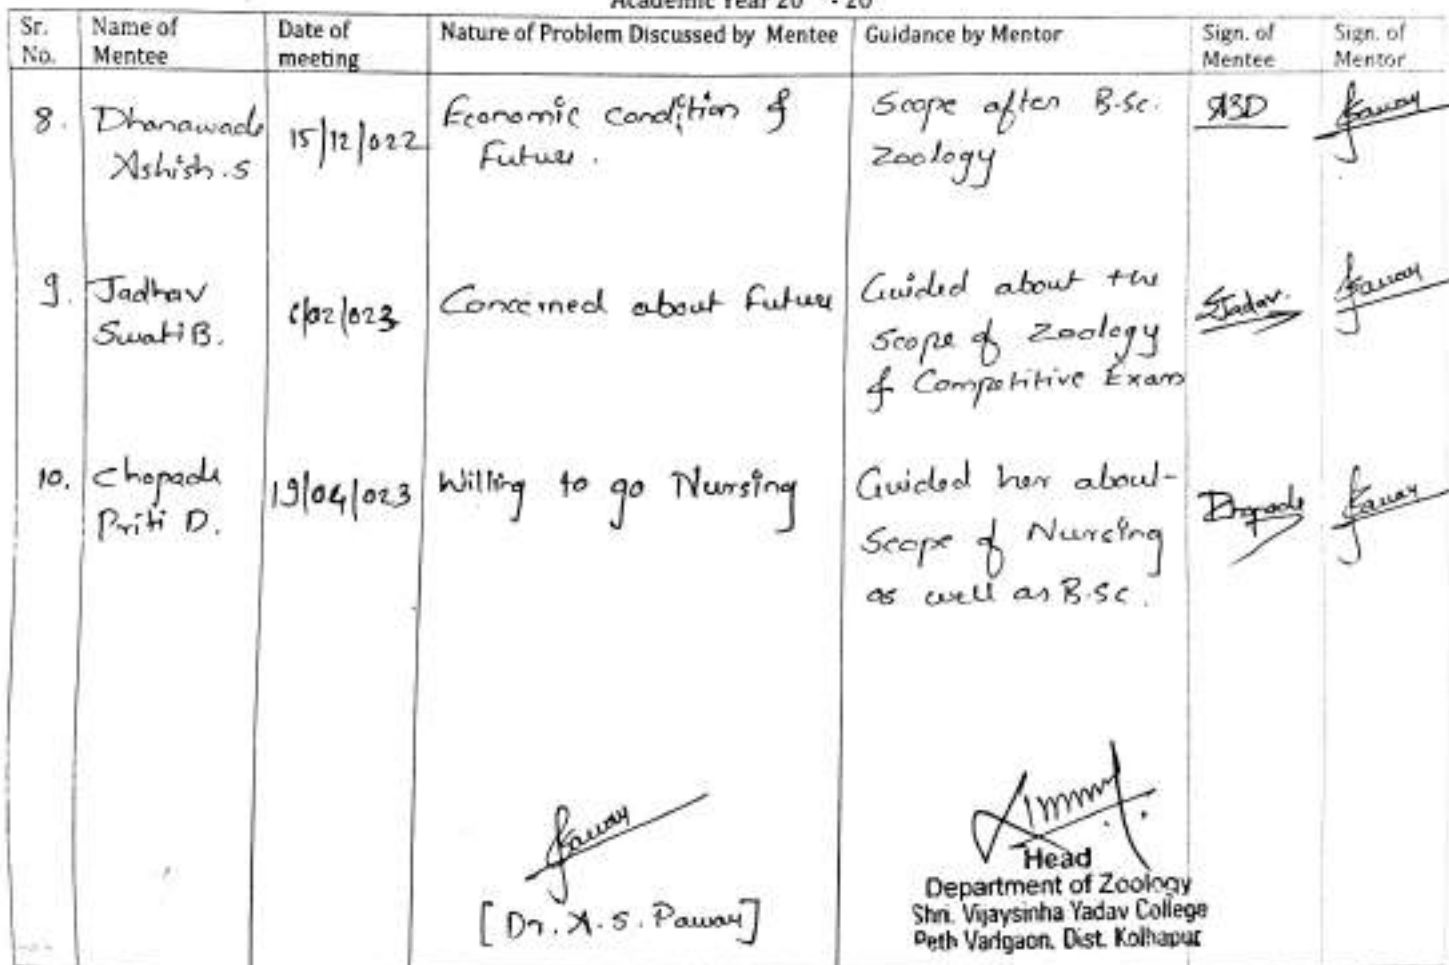 Academic Year 20 - 20
Sr. No. Name of Mentee Date of meeting Nature of Problem Discussed by Mentee Guidance by Mentor Sign. of Mentee Sign. of Mentor
8. Dhanawade
Ashish.S
15/12/022
Economic condition &
Future.
Scope after B.Sc.
Zoology
ASD
Pawar
9. Jadhav
Swati B.
6/02/023
Concerned about future
Guided about the
scope of Zoology
& Competitive Exam
SJadav.
Pawar
10. Chopade
Priti D.
19/04/023
Willing to go Nursing
Guided her about
Scope of Nursing
as well as B.Sc.
Pawar
Pawar
[Dr. A. S. Pawar]
Head
Department of Zoology
Shri. Vijaysinha Yadav College
Peth Vadgaon, Dist. Kolhapur